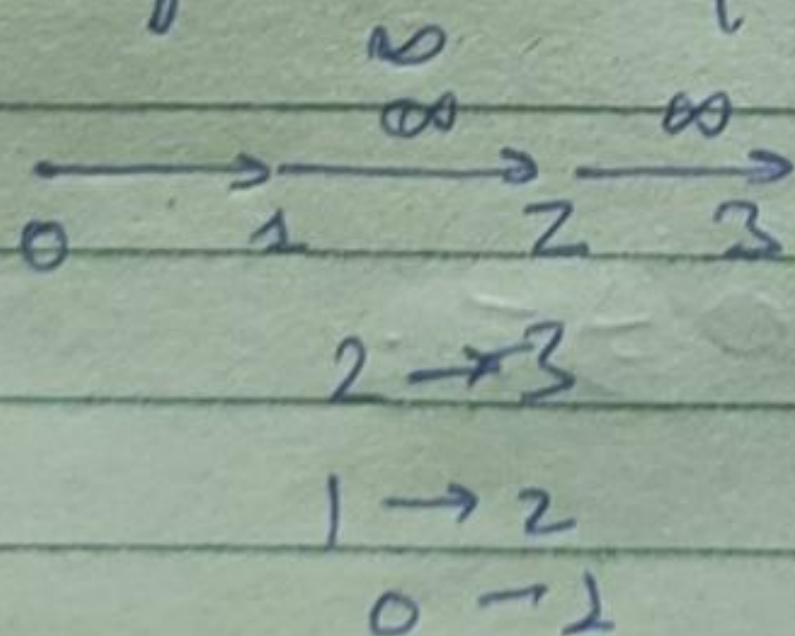 ∞
∞ ∞
0 1 2 3
2 → 3
1 → 2
0 - 2